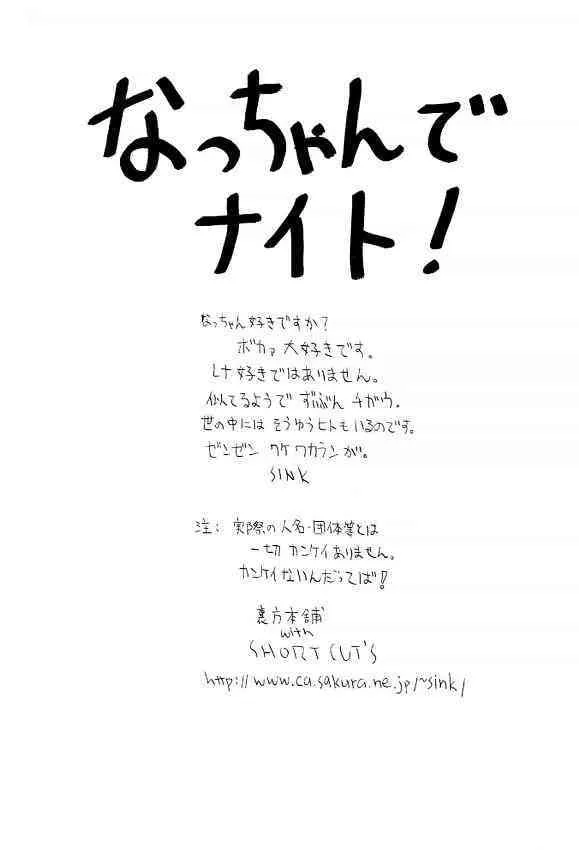 なっちゃんで
ナイト!
なっちゃん好きですか?
ボカァ 大好きです。
レナ好きではありません。
似てるようで ずぶん チガウ.
世の中には そうゆうヒトも いるのです。
ゼンゼン ワケ ワカランが。
SINK
注: 実際の人名・団体等とは
一切 カンケイありません。
カンケイないんだってば!
裏方本舗
with
SHORT CUT'S
http://www.ca.sakura.ne.jp/~sink/